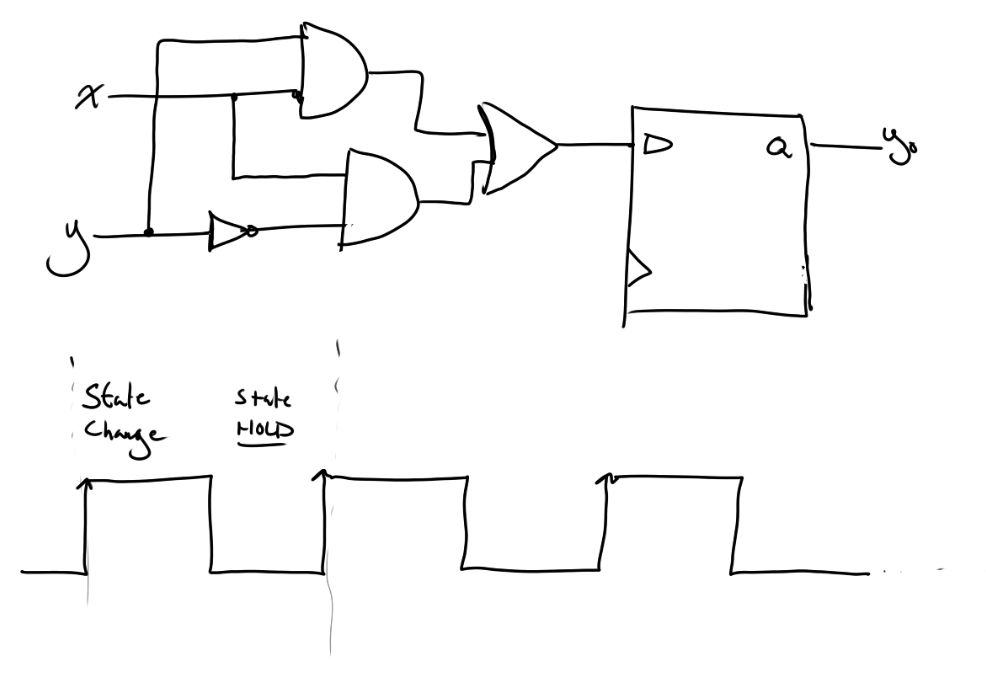 x
y
D
Q
y₀
State
Change
State
HOLD